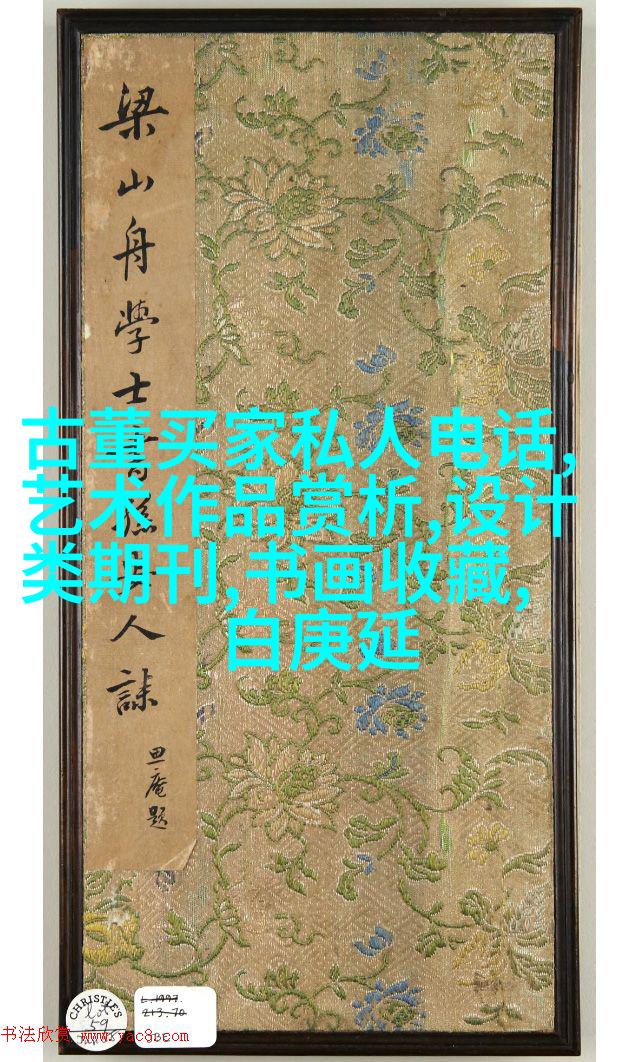 梁山舟學士書孫人誄
庵題
古董买家私人电话,
艺术作品赏析,设计
类期刊,书画收藏,
白庚延
CHRISTIE'S
Lot
59
L.1997
213.70
书法欣赏 www.yac8.com